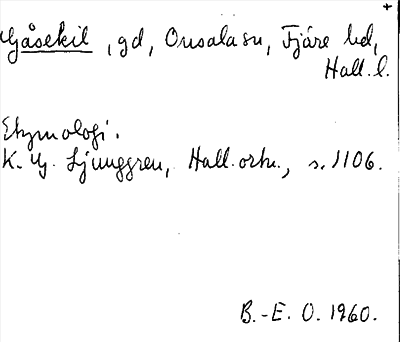 +
Gåsekil, gd, Onsala sn, Fjäre hd,
Hall. l.
Etymologi.
K. G. Ljunggren, Hall. ortn., s. 1106.
B.-E. O. 1960.